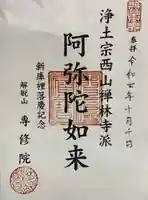 奉拝 令和六年十月十四日
浄土宗西山禅林寺派
阿弥陀如来
新庫裡落慶記念
解脱山 専修院